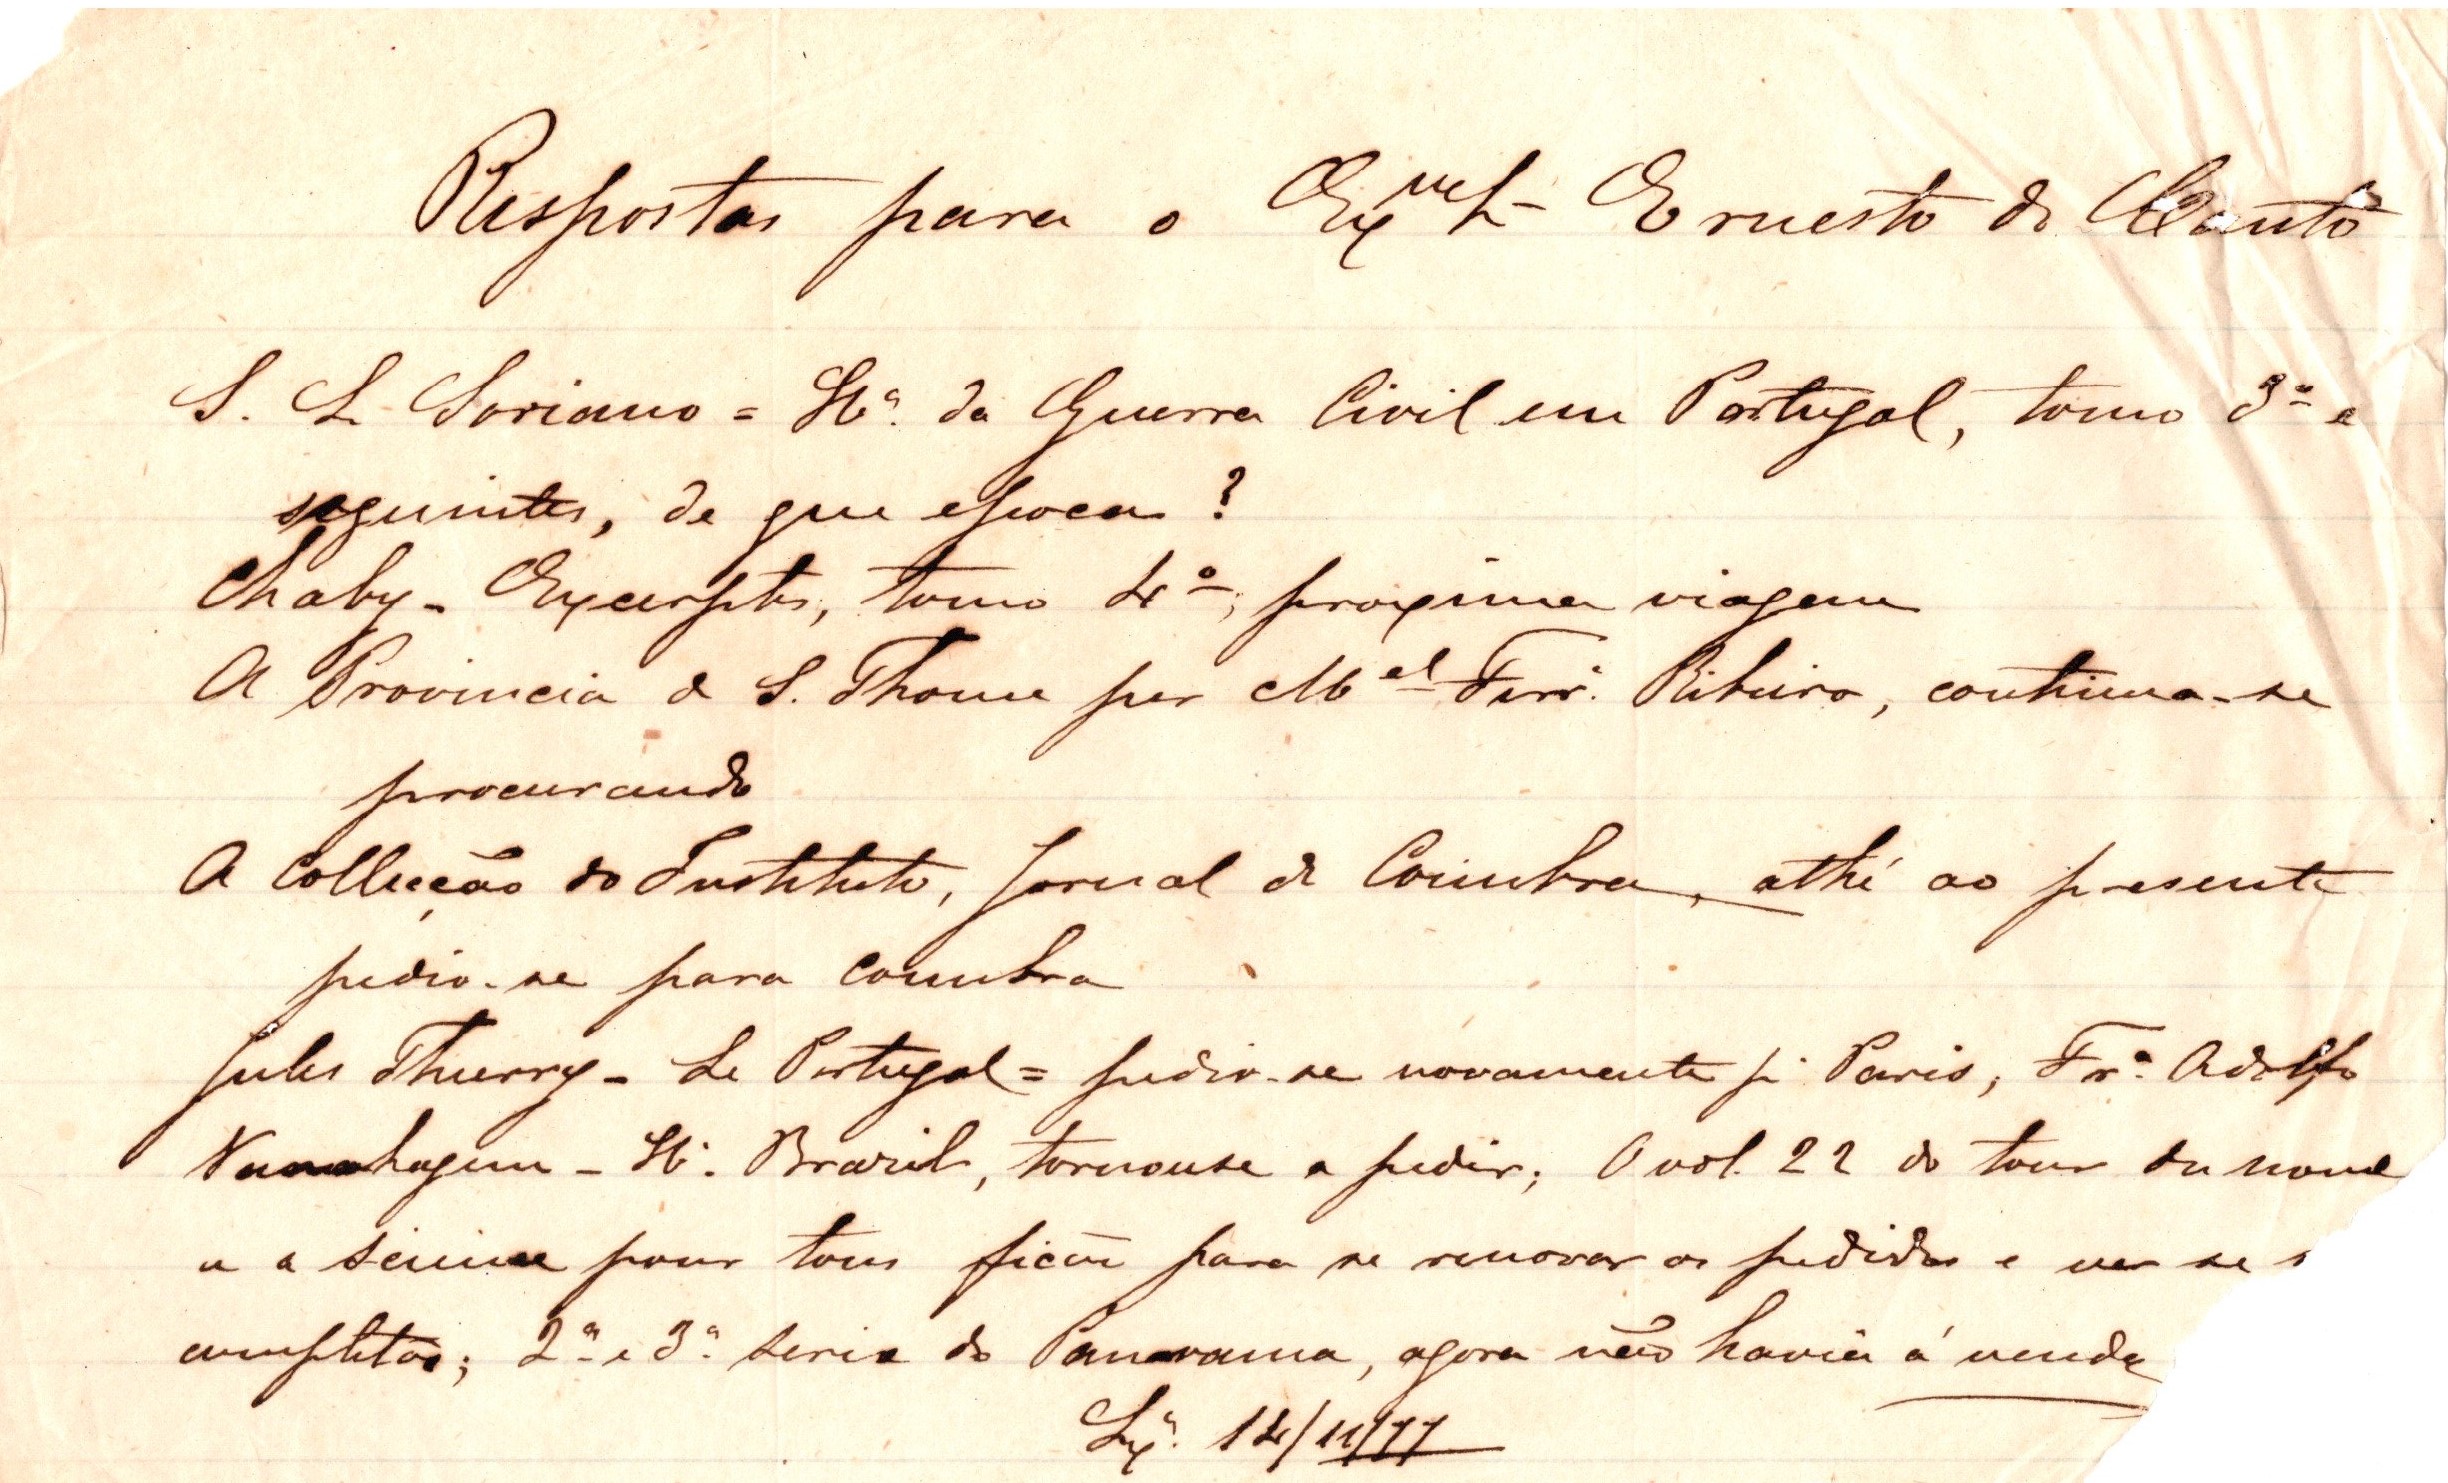 Respostas para o Ex.mo Sr. Ernesto do Canto
S. L. Soriano = Ha. da Guerra Civil em Portugal, tomo 3º e
seguintes, de que epocas?
Chaby - Excerptos, tomo 4º, proxima viagem
A Provincia de S. Thome por Mel Ferr.ª Ribeiro, continua-se
procurando
A Collecção do Instituto, Jornal de Coimbra, athé ao presente
pedio-se para Coimbra
Jules Thierry - Le Portugal = pedio-se novamente pª Paris; Frº Adolfo
Varnhagem - Hª. Brazil, tornouse a pedir; O vol. 22 do tour du monde
e a science pour tous ficão para se renovar os pedidos e ver se
completão; 2ª e 3ª serie do Panorama, agora não havia á venda
Lxª. 14/11/77